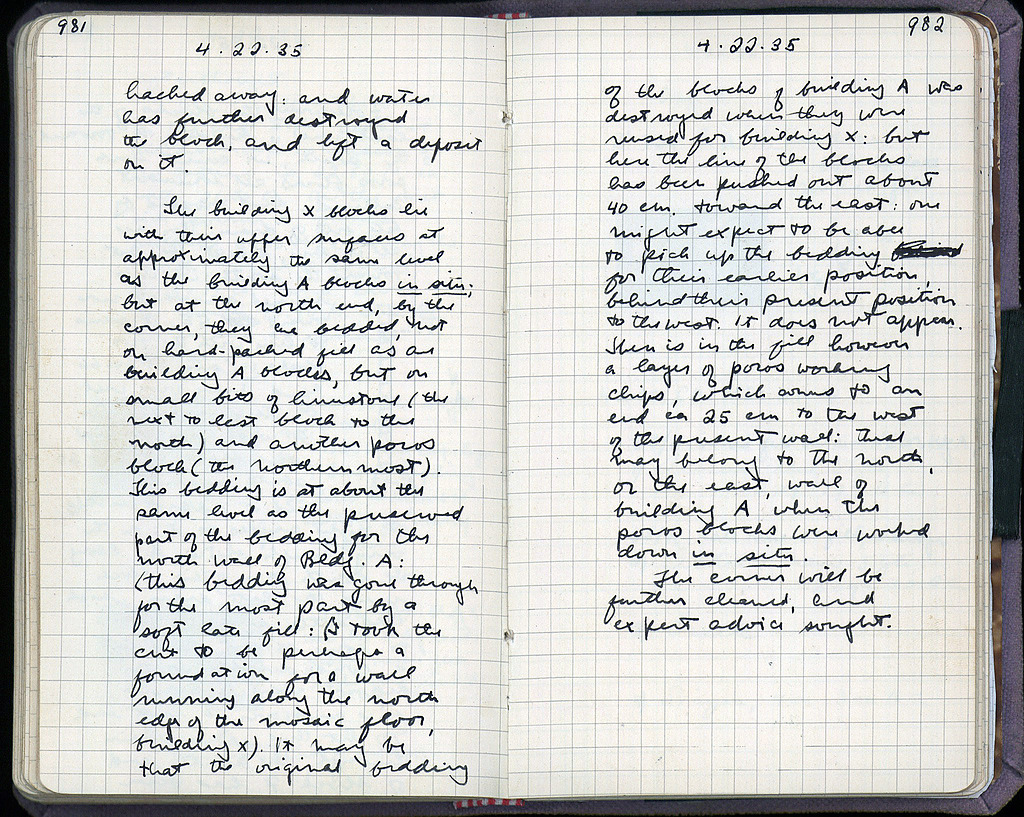 981
4.22.35
hacked away: and water
has further destroyed
the block, and left a deposit
on it.
The building X blocks lie
with their upper surfaces at
approximately the same level
as the building A blocks in situ;
but at the north end, by the
corner, they are bedded, not
on hard-packed fill as are
building A blocks, but on
small bits of limestone (the
next to last block to the
north) and another poros
block (the northernmost).
This bedding is at about the
same level as the preserved
part of the bedding for the
north wall of Bldg. A:
(this bedding was gone through
for the most part by a
soft late fill: I took the
cut to be perhaps a
foundation for a wall
running along the north
edge of the mosaic floor,
building X). It may be
that the original bedding
982
4.22.35
of the blocks of building A was
destroyed when they were
reused for building X: but
here the line of the blocks
has been pushed out about
40 cm. toward the east: one
might expect to be able
to pick up the bedding
for their earlier position,
behind their present position
to the west. It does not appear.
There is in the fill however
a layer of poros working
chips, which comes to an
end ca 25 cm to the west
of the present wall: these
may belong to the north,
or the east, wall of
building A when the
poros blocks were worked
down in situ.
The corner will be
further cleaned, and
expert advice sought.